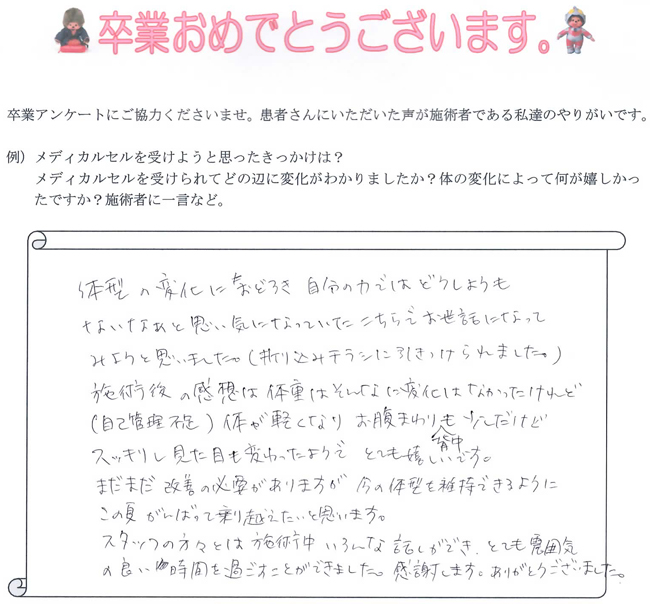 卒業おめでとうございます。
卒業アンケートにご協力くださいませ。患者さんにいただいた声が施術者である私達のやりがいです。
例）メディカルセルを受けようと思ったきっかけは？
メディカルセルを受けられてどの辺に変化がわかりましたか？体の変化によって何が嬉しかっ
たですか？施術者に一言など。
体型の変化におどろき 自分の力ではどうしようも
ないなぁと思い気になっていたこちらでお世話になって
みようと思いました。(折り込みチラシに引きつけられました。)
施術後の感想は体重はそんなに変化はなかったけれど
(自己管理不足) 体が軽くなり お腹まわりも 少しだけど
背中
スッキリし見た目も変わったようで とても嬉しいです。
まだまだ 改善の必要がありますが 今の体型を維持できるように
この夏 がんばって乗り越えたいと思います。
スタッフの方々とは 施術中 いろんな 話しができ、とても雰囲気
の良い 時間を過ごすことができました。感謝します。ありがとうございました。